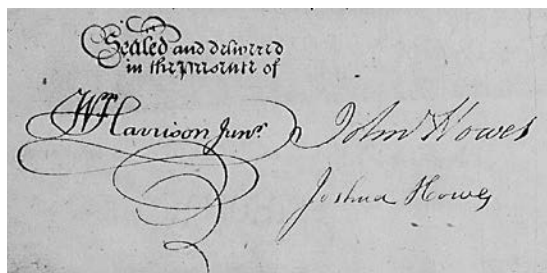 Sealed and delivered
in the presence of
Wm Harrison Junr. John Howes
Joshua Howes